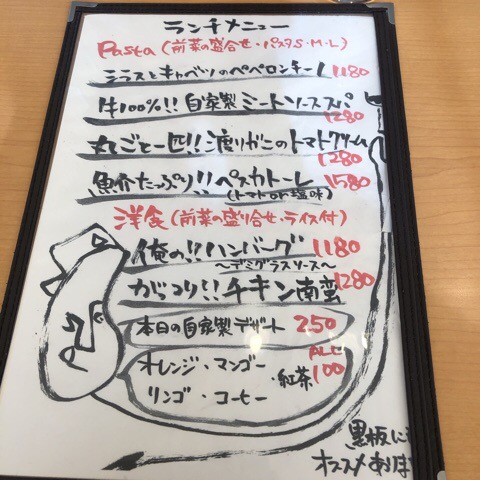 ランチメニュー
Pasta (前菜の盛合せ・パスタS・M・L)
シラスとキャベツのペペロンチーノ 1180
牛100%!! 自家製 ミートソーススパ 1280
丸ごと一匹!! 渡りがにのトマトクリーム 1280
魚介たっぷり!! ペスカトーレ 1580
(トマトor塩味)
洋食 (前菜の盛り合せ・ライス付)
俺の!! ハンバーグ 1180
〜デミグラスソース〜
がっつり!! チキン南蛮 1280
本日の自家製デザート 250
オレンジ・マンゴー ・紅茶 ALL 100
リンゴ・コーヒー
黒板に
オススメあります